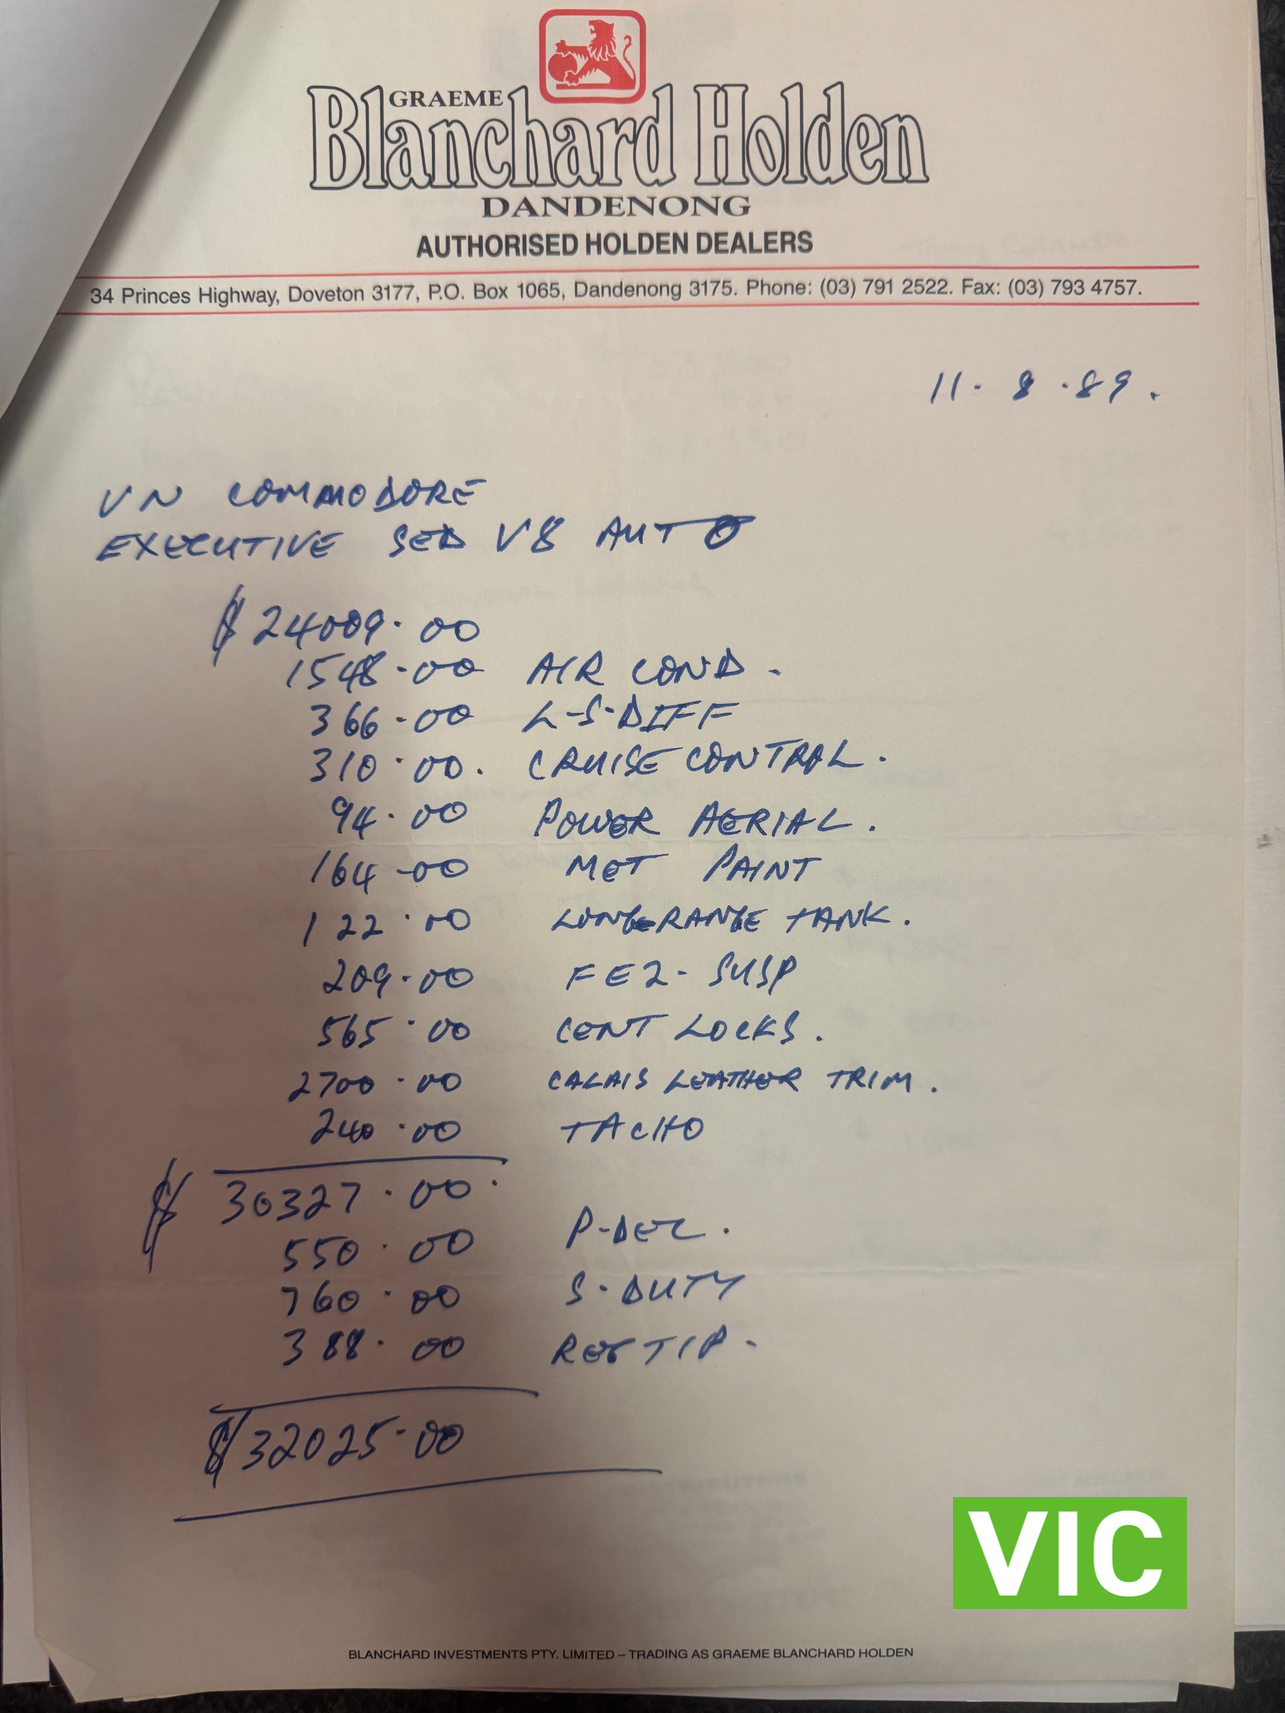 GRAEME
Blanchard Holden
DANDENONG
AUTHORISED HOLDEN DEALERS
34 Princes Highway, Doveton 3177, P.O. Box 1065, Dandenong 3175. Phone: (03) 791 2522. Fax: (03) 793 4757.
11. 8.89.
VN COMMODORE
EXECUTIVE SED V8 AUTO
$24009.00
1548-00 AIR COND.
366-00 L-S-DIFF
310.00. CRUISE CONTROL.
94.00 POWER AERIAL.
164-00 MET PAINT
122.00 LONGRANGE TANK.
209.00 FE2-SUSP
565.00 CENT LOCKS.
2700.00 CALAIS LEATHER TRIM.
240.00 TACHO
$30327.00.
550.00 P-DEL.
760.00 S-DUTY
388.00 REG TIP.
$32025-00
VIC
BLANCHARD INVESTMENTS PTY. LIMITED – TRADING AS GRAEME BLANCHARD HOLDEN